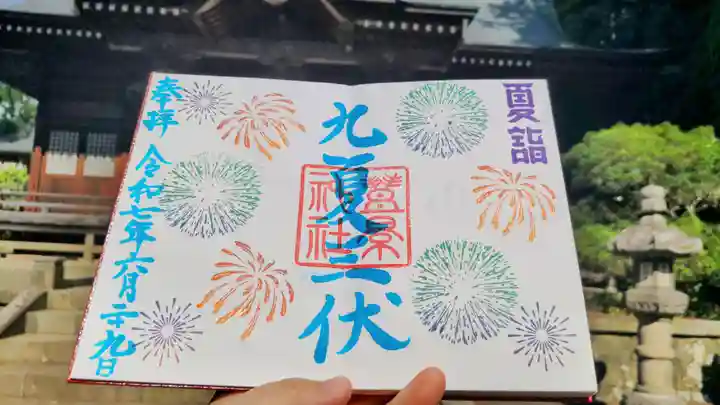 夏詣
九夏三伏
鷲宮
神社
奉拝
令和七年六月二十九日